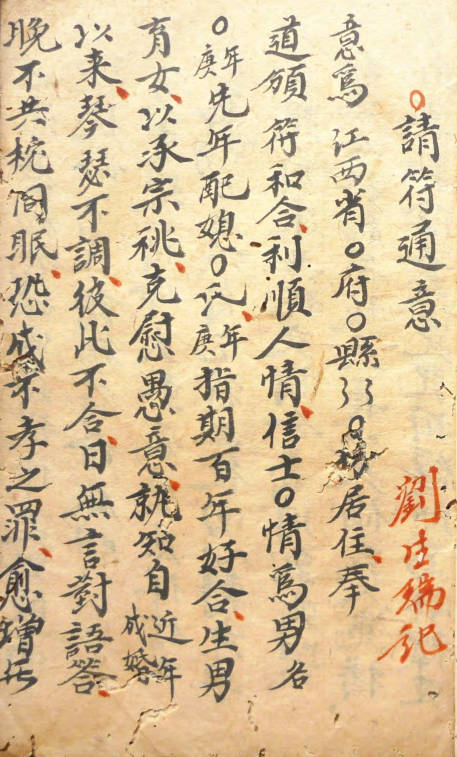 ○請符通意
劉生編記
意爲江西省○府○縣
居住奉
道頒符和合利順人情信士○情爲男名
○年庚先年配媳○氏年庚指期百年好合生男
育女以承宗祧克慰愚意孰知自近年成婚
以来琴瑟不調彼此不合日無言對語答
晚不共枕同眠恐成不孝之罪愈增